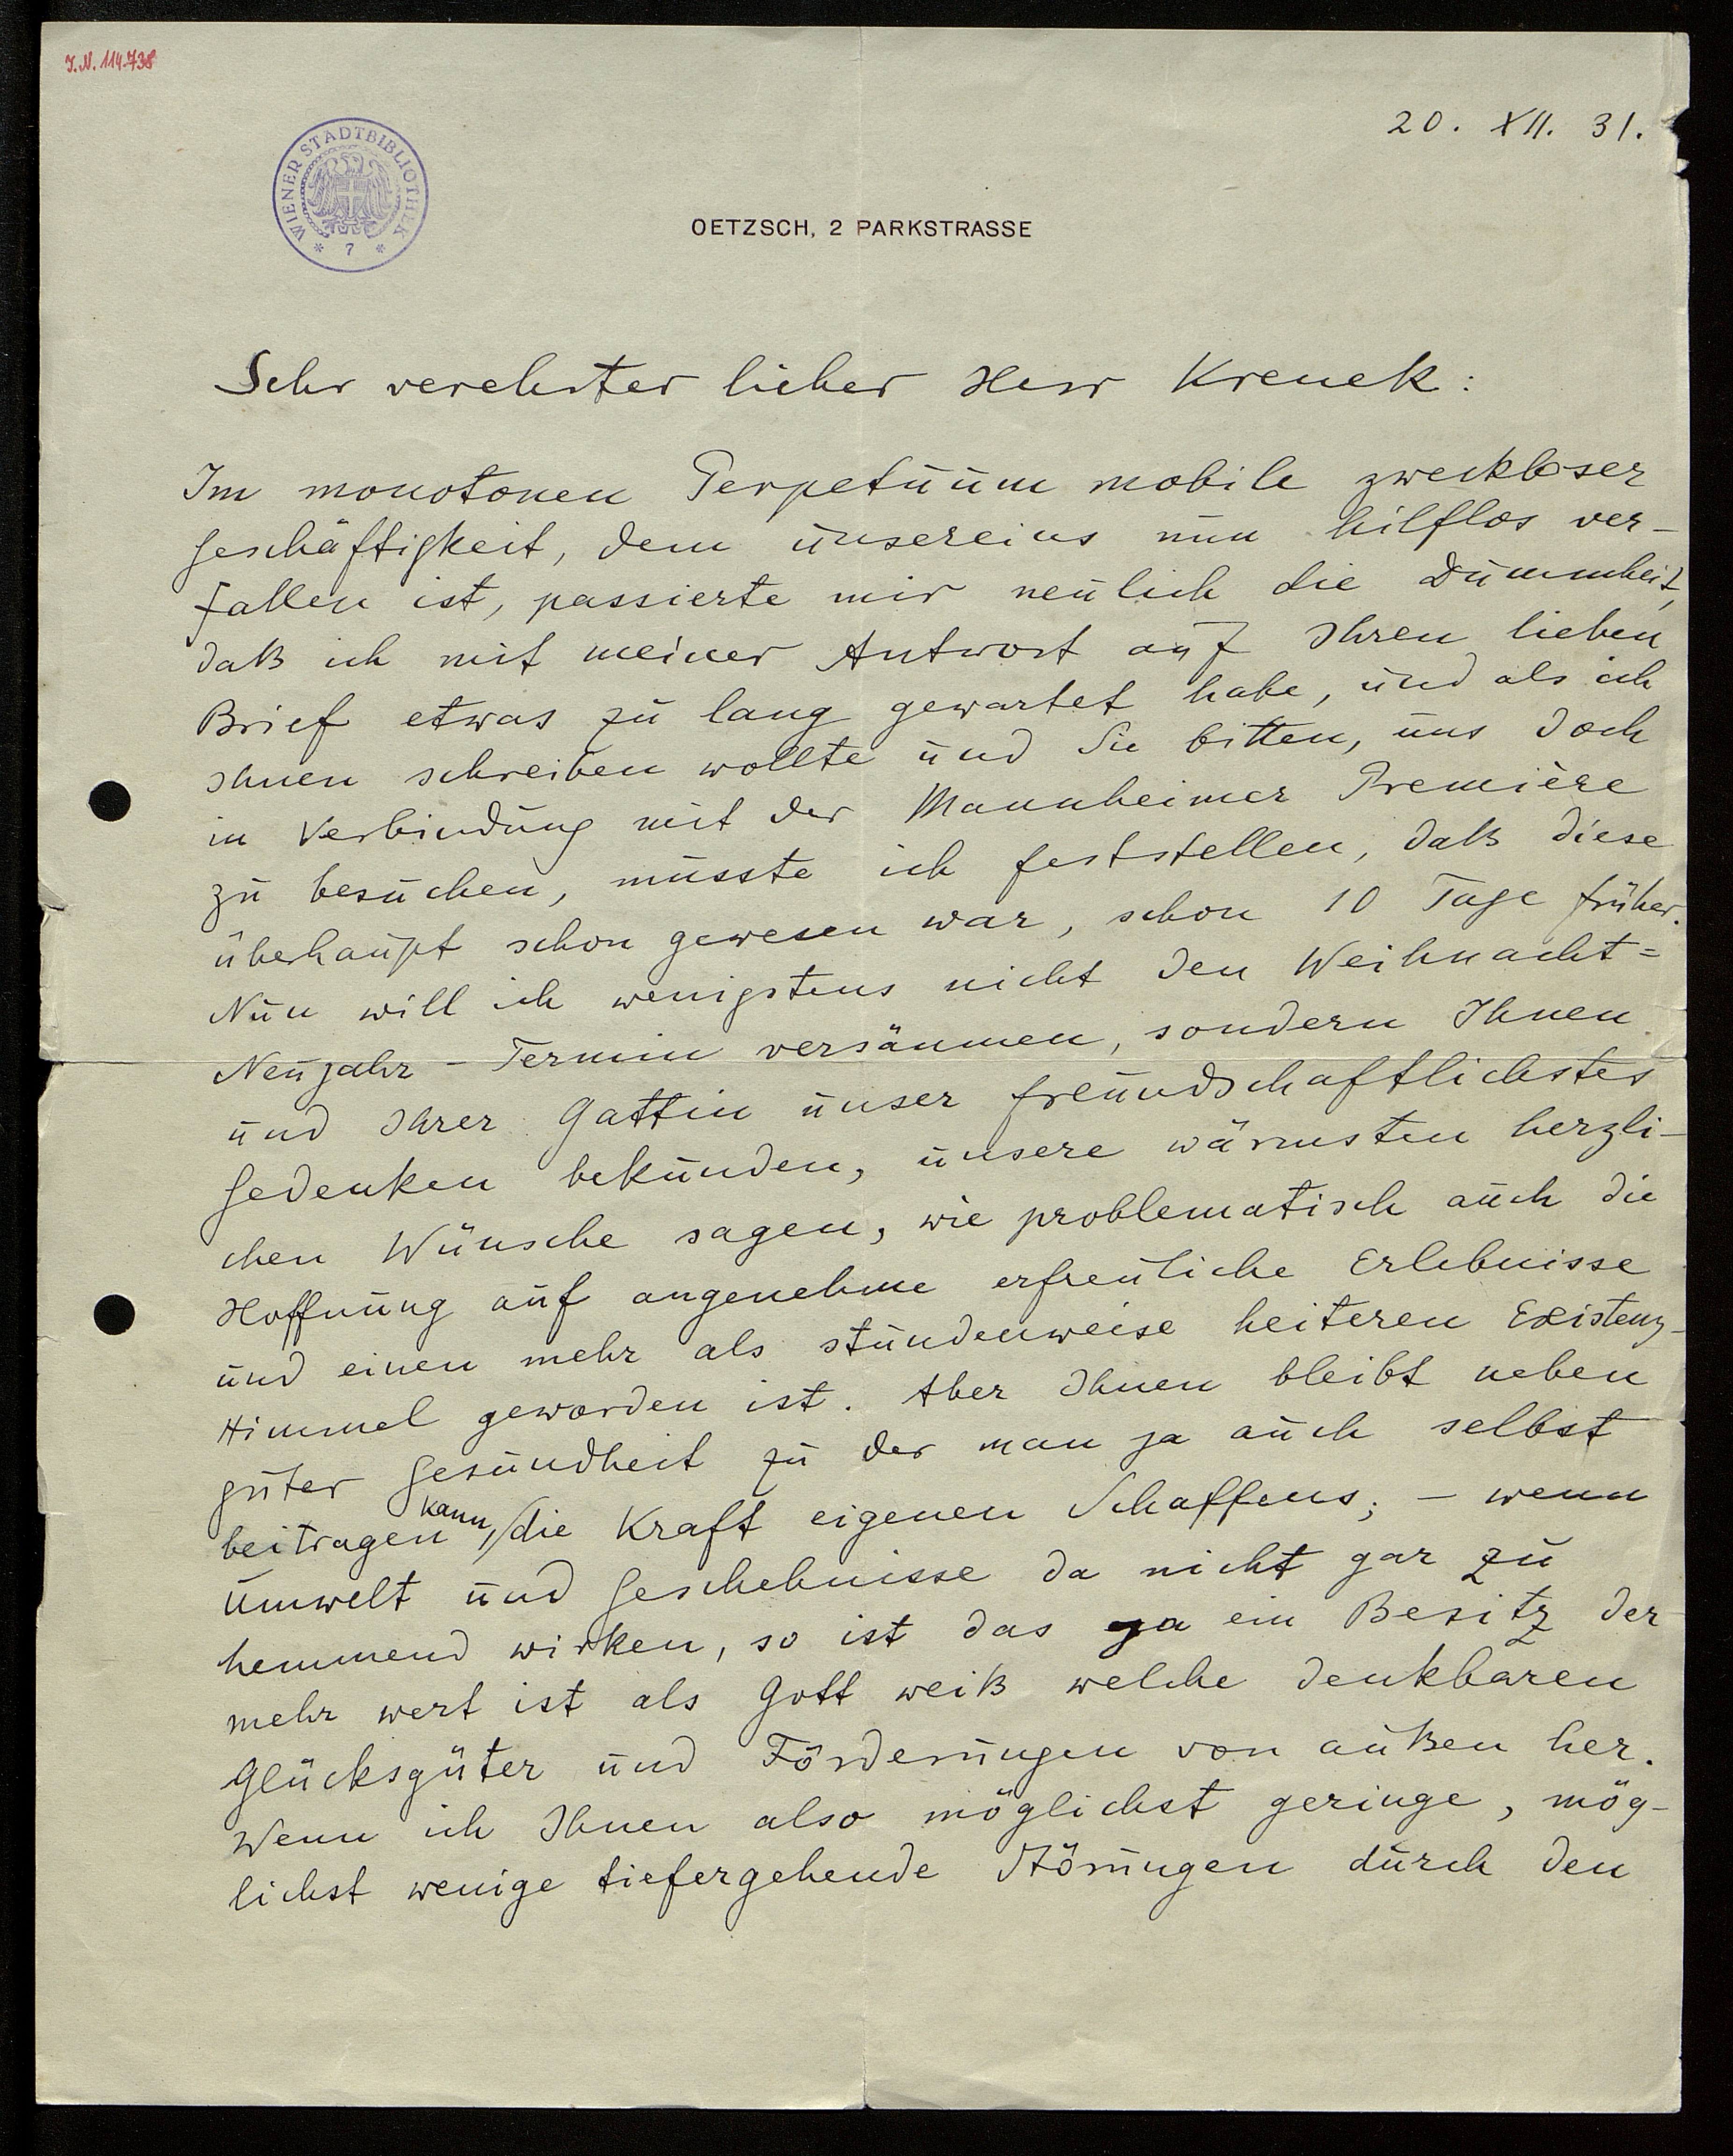 I.N. 114.738
20. XII. 31.
WIENER STADTBIBLIOTHEK
* 7 *
OETZSCH, 2 PARKSTRASSE
Sehr verehrter lieber Herr Krenek:
Im monotonen Perpetuum mobile zweckloser
Geschäftigkeit, dem unsereins nun hilflos ver-
fallen ist, passierte mir neulich die Dummheit,
daß ich mit meiner Antwort auf Ihren lieben
Brief etwas zu lang gewartet habe, und als ich
Ihnen schreiben wollte und Sie bitten, uns doch
in Verbindung mit der Mannheimer Première
zu besuchen, musste ich feststellen, daß diese
überhaupt schon gewesen war, schon 10 Tage früher.
Nun will ich wenigstens nicht den Weihnacht=
Neujahr-Termin versäumen, sondern Ihnen
und Ihrer Gattin unser freundschaftlichstes
Gedenken bekunden, unsere wärmsten herzli-
chen Wünsche sagen, wie problematisch auch die
Hoffnung auf angenehme erfreuliche Erlebnisse
und einen mehr als stundenweise heiteren Existenz-
Himmel geworden ist. Aber Ihnen bleibt neben
guter Gesundheit zu der man ja auch selbst
beitragen kann, die Kraft eigenen Schaffens; – wenn
Umwelt und Geschehnisse da nicht gar zu
hemmend wirken, so ist das ja ein Besitz der
mehr wert ist als Gott weiß welche denkbaren
Glücksgüter und Förderungen von außen her.
Wenn ich Ihnen also möglichst geringe, mög-
lichst wenige tiefergehende Störungen durch den